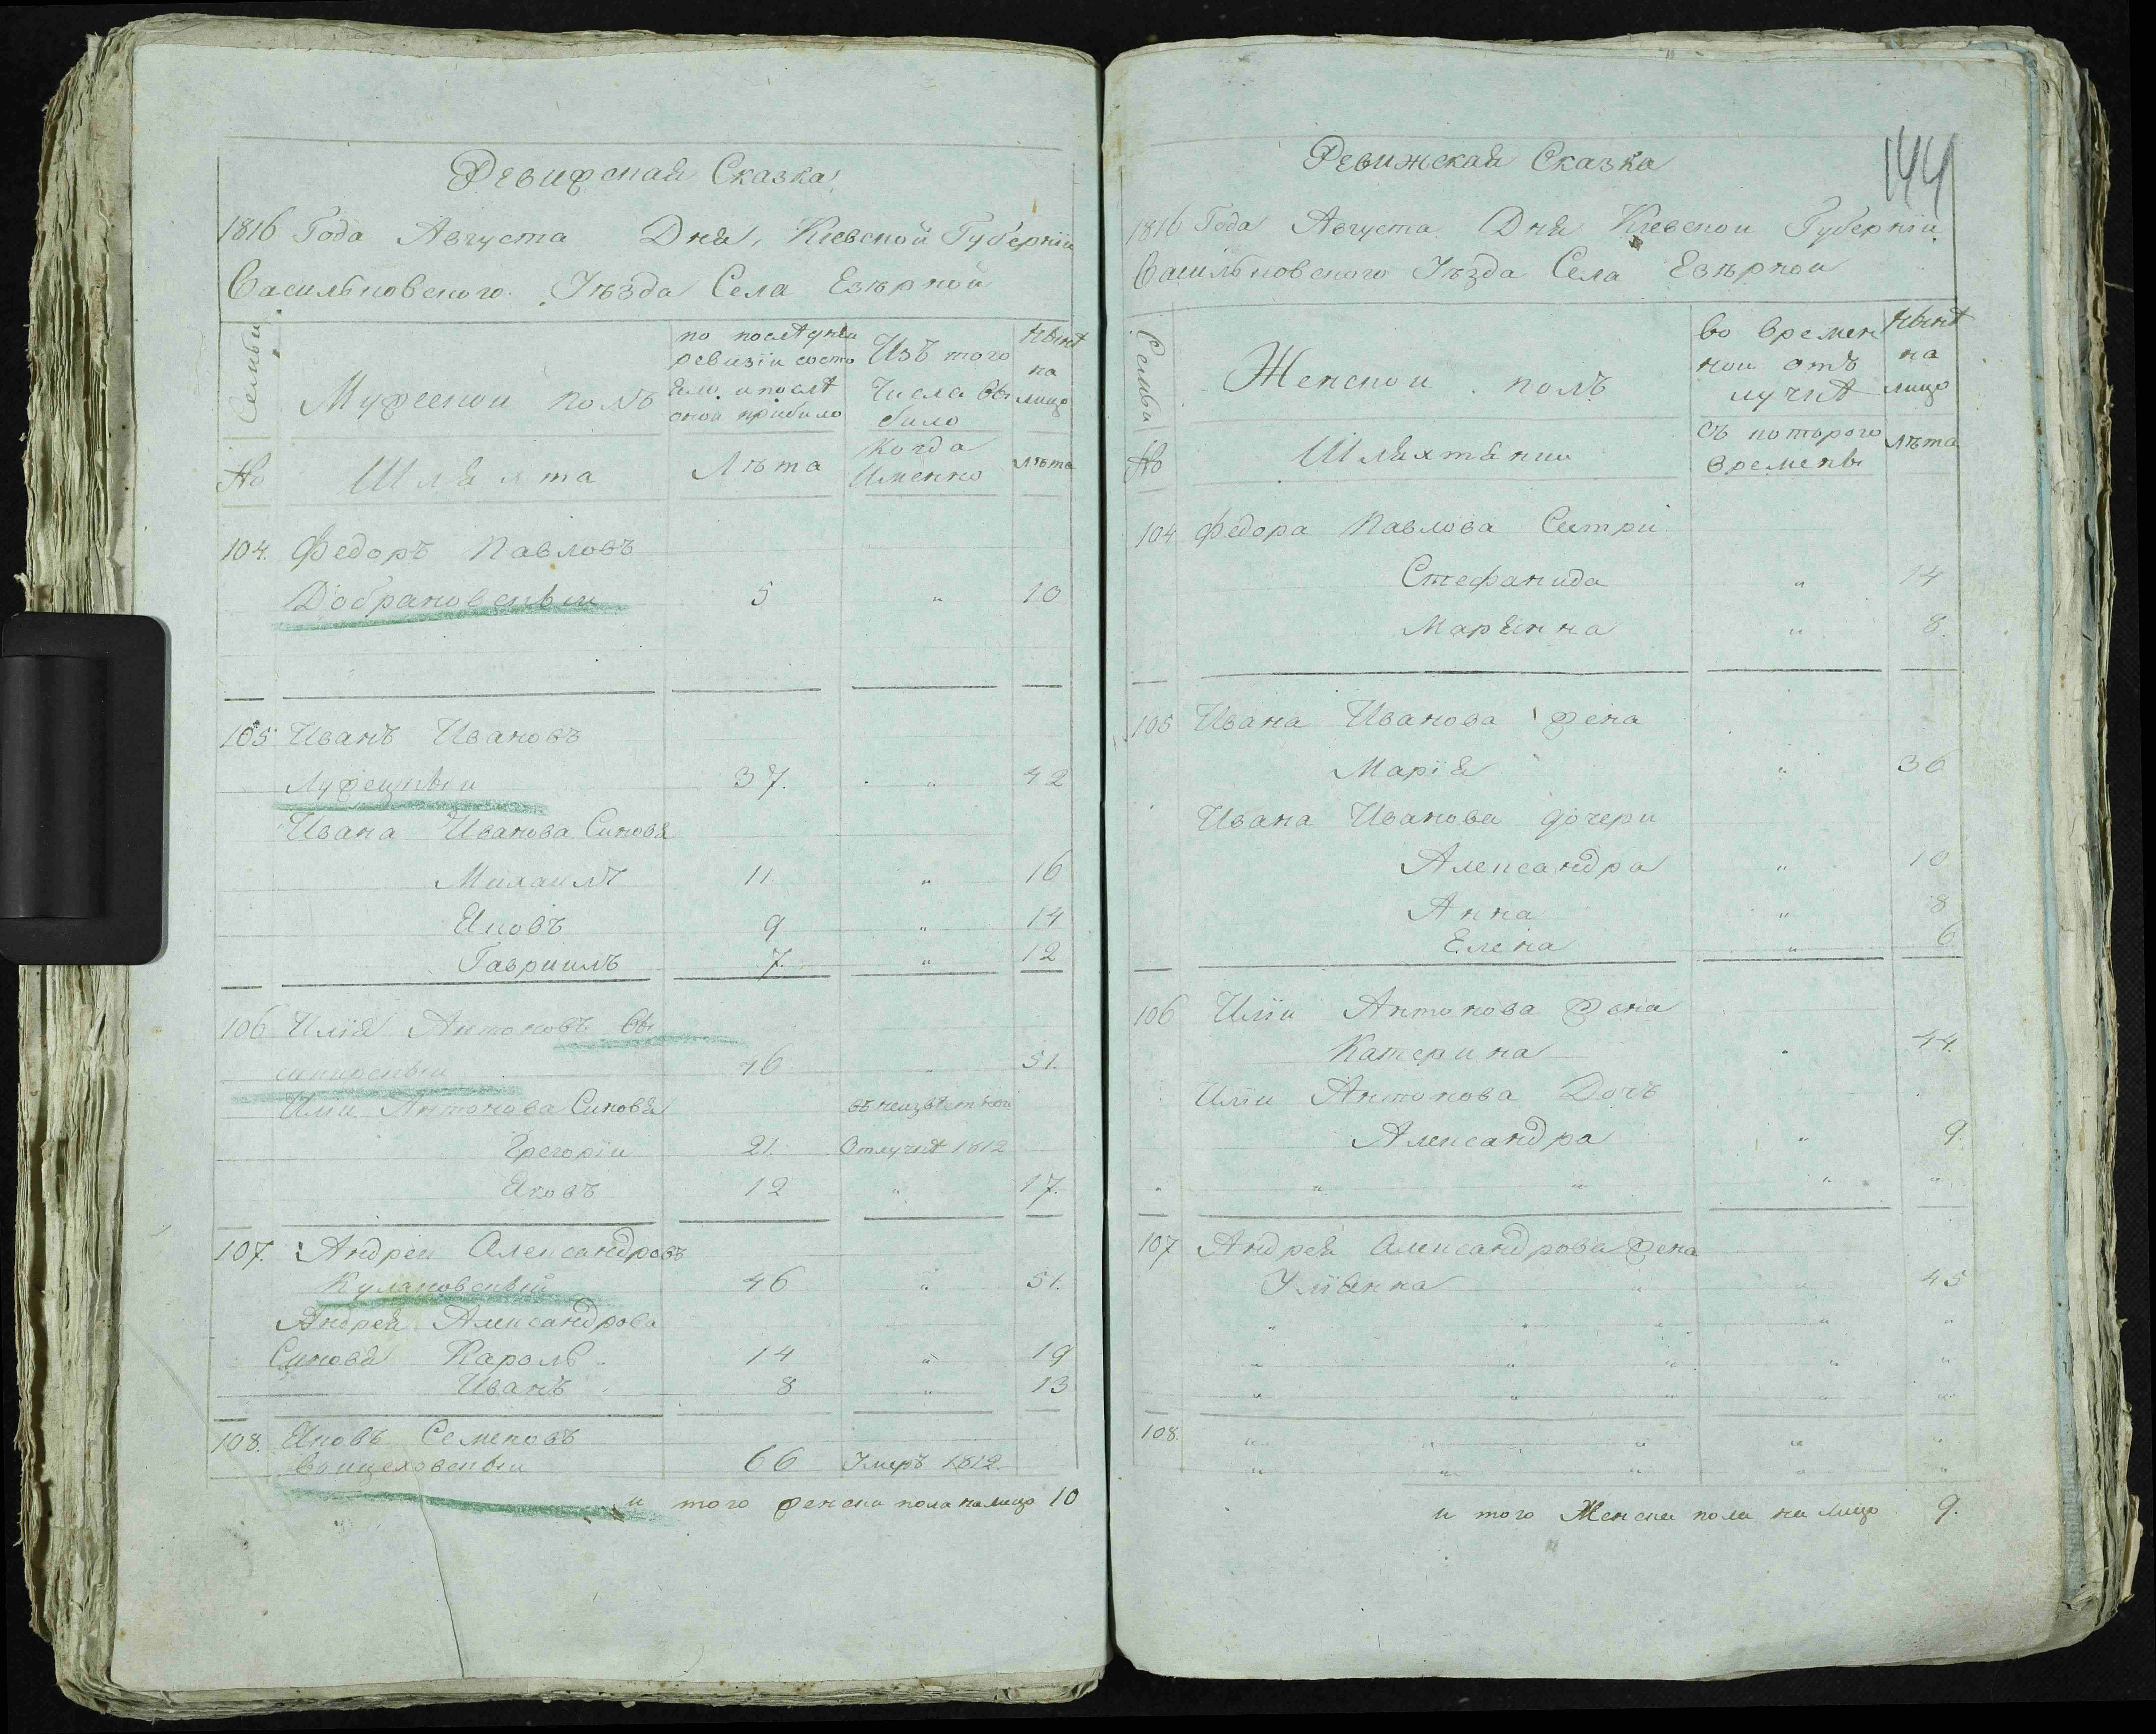 Ревижская Сказка
1816 Года Августа Дня, Киевской Губернїи
Васильковского Уѣзда Села Езѣрной
Семьи
Мужескои полъ
по послѣднеи
ревизїи состо
яло и послѣ
оной прибило
Изъ того
Числа вы
било
Нынѣ
на
лицо
№
Шляхта
Лѣта
Когда
Именно
лѣта
104. Федоръ Павловъ
Добрановскьїи 5 " 10
105 Иванъ Ивановъ
37. " 42
Ивана Иванова Синовя
Михаилъ 11 " 16
Яковъ 9 " 14
Гавриилъ 7. " 12
106 Илїя Антоновъ Вы
46 " 51.
Илїи Антонова Синовя въ неизвѣстной
Грегорїи 21. Отлучкѣ 1812
Яковъ 12 " 17.
107. Андреи Александровъ
Кулаковскьїй 46 " 51.
Андрея Александрова
Синовя Кароль 14 " 19
Иванъ 8 " 13
108. Яковъ Семеновъ
Воицеховскьїи 66 Умеръ 1812.
и того женска пола на лицо 10
144
Ревижская Сказка
1816 Года Августа Дня Киевскои Губернїи
Васильковского Уѣзда Села Езѣрнои
Семьи
Женскои полъ
во времен
нои отъ
лучкѣ
Нынѣ
на
лицо
№
Шляхтянки
съ которого
времены
лѣта
104 Федора Павлова Систри
Стефанида " 14
Марянна " 8.
105 Ивана Иванова жена
Марїя " 36
Ивана Иванова дочери
Александра " 10
Анна " 8
Елена " 6
106 Илїи Антонова Жена
Катерина " 44.
Илїи Антонова Дочъ
Александра " 9.
" " " " "
107 Андрея Александрова жена
Улїянна " " 45
" " " " "
" " " " "
" " " " "
108. " " " " "
" " " " "
и того Женска пола на лицо 9.